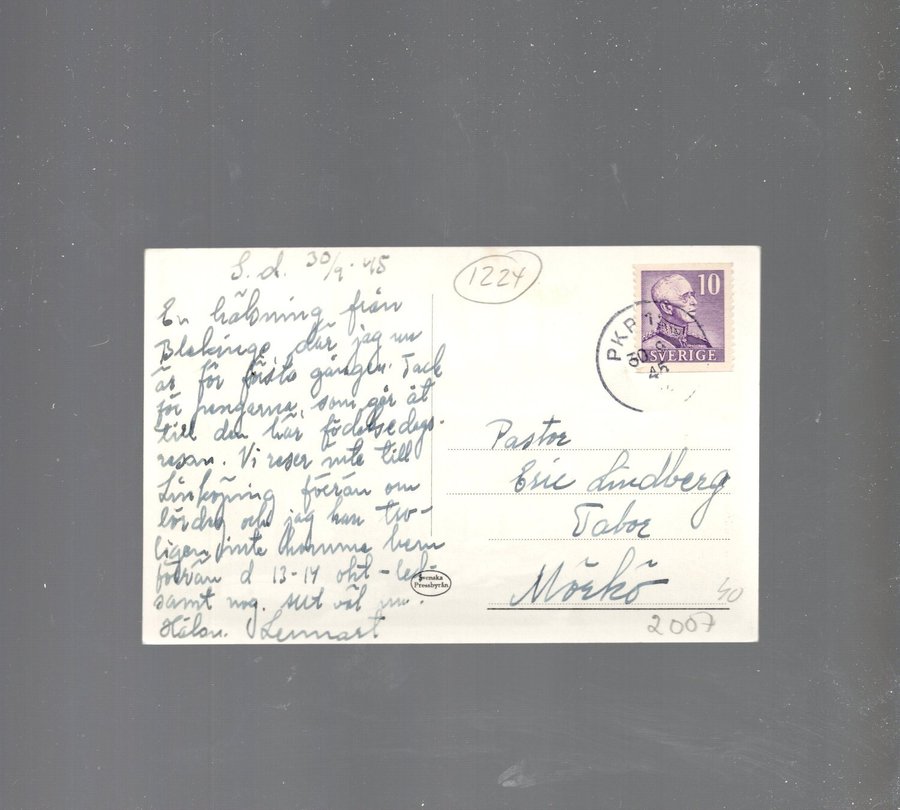 S.d. 30/9 - 45
En hälsning från
Blekinge där jag nu
är för första gången. Tack
för pengarna, som går åt
till den här födelsedags-
resan. Vi reser inte till
Linköping förrän om
lördag och jag kan tro-
ligen inte komma hem
förrän d 13-14 okt - led-
samt nog. Mt väl nu.
Hälsn. Lennart
1224
10
SVERIGE
PKP
30 9
45
Pastor
Eric Lindberg
Tabor
Mörkö
Svenska
Pressbyrån
40
2007